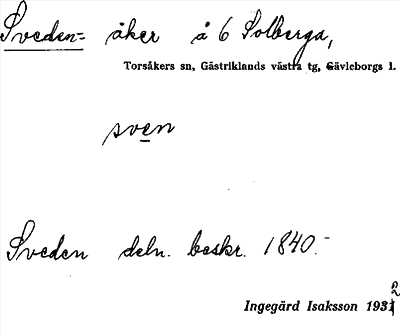 Sveden= åker å 6 Solberga,
Torsåkers sn, Gästriklands västra tg, Gävleborgs l.
sven
Sveden deln. beskr. 1840.-
Ingegärd Isaksson 1932